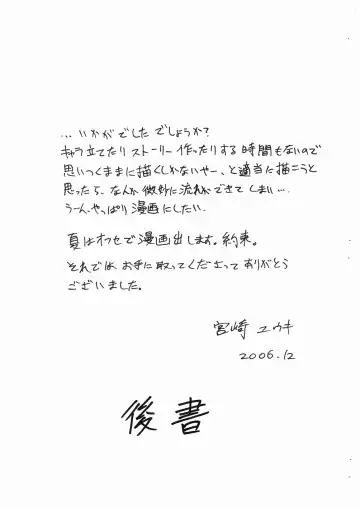 …いかがでしたでしょうか?
キャラ立てたりストーリー作ったりする時間もないので
思いつくままに描くしかないやー、と適当に描こうと
思ったら、なんか微妙に流れができてしまい…。
うーん、やっぱり漫画にしたい。
夏はオフセで漫画出します。約束。
それではお手に取ってくださってありがとう
ございました。
宮崎 ユウキ
2006.12
後書